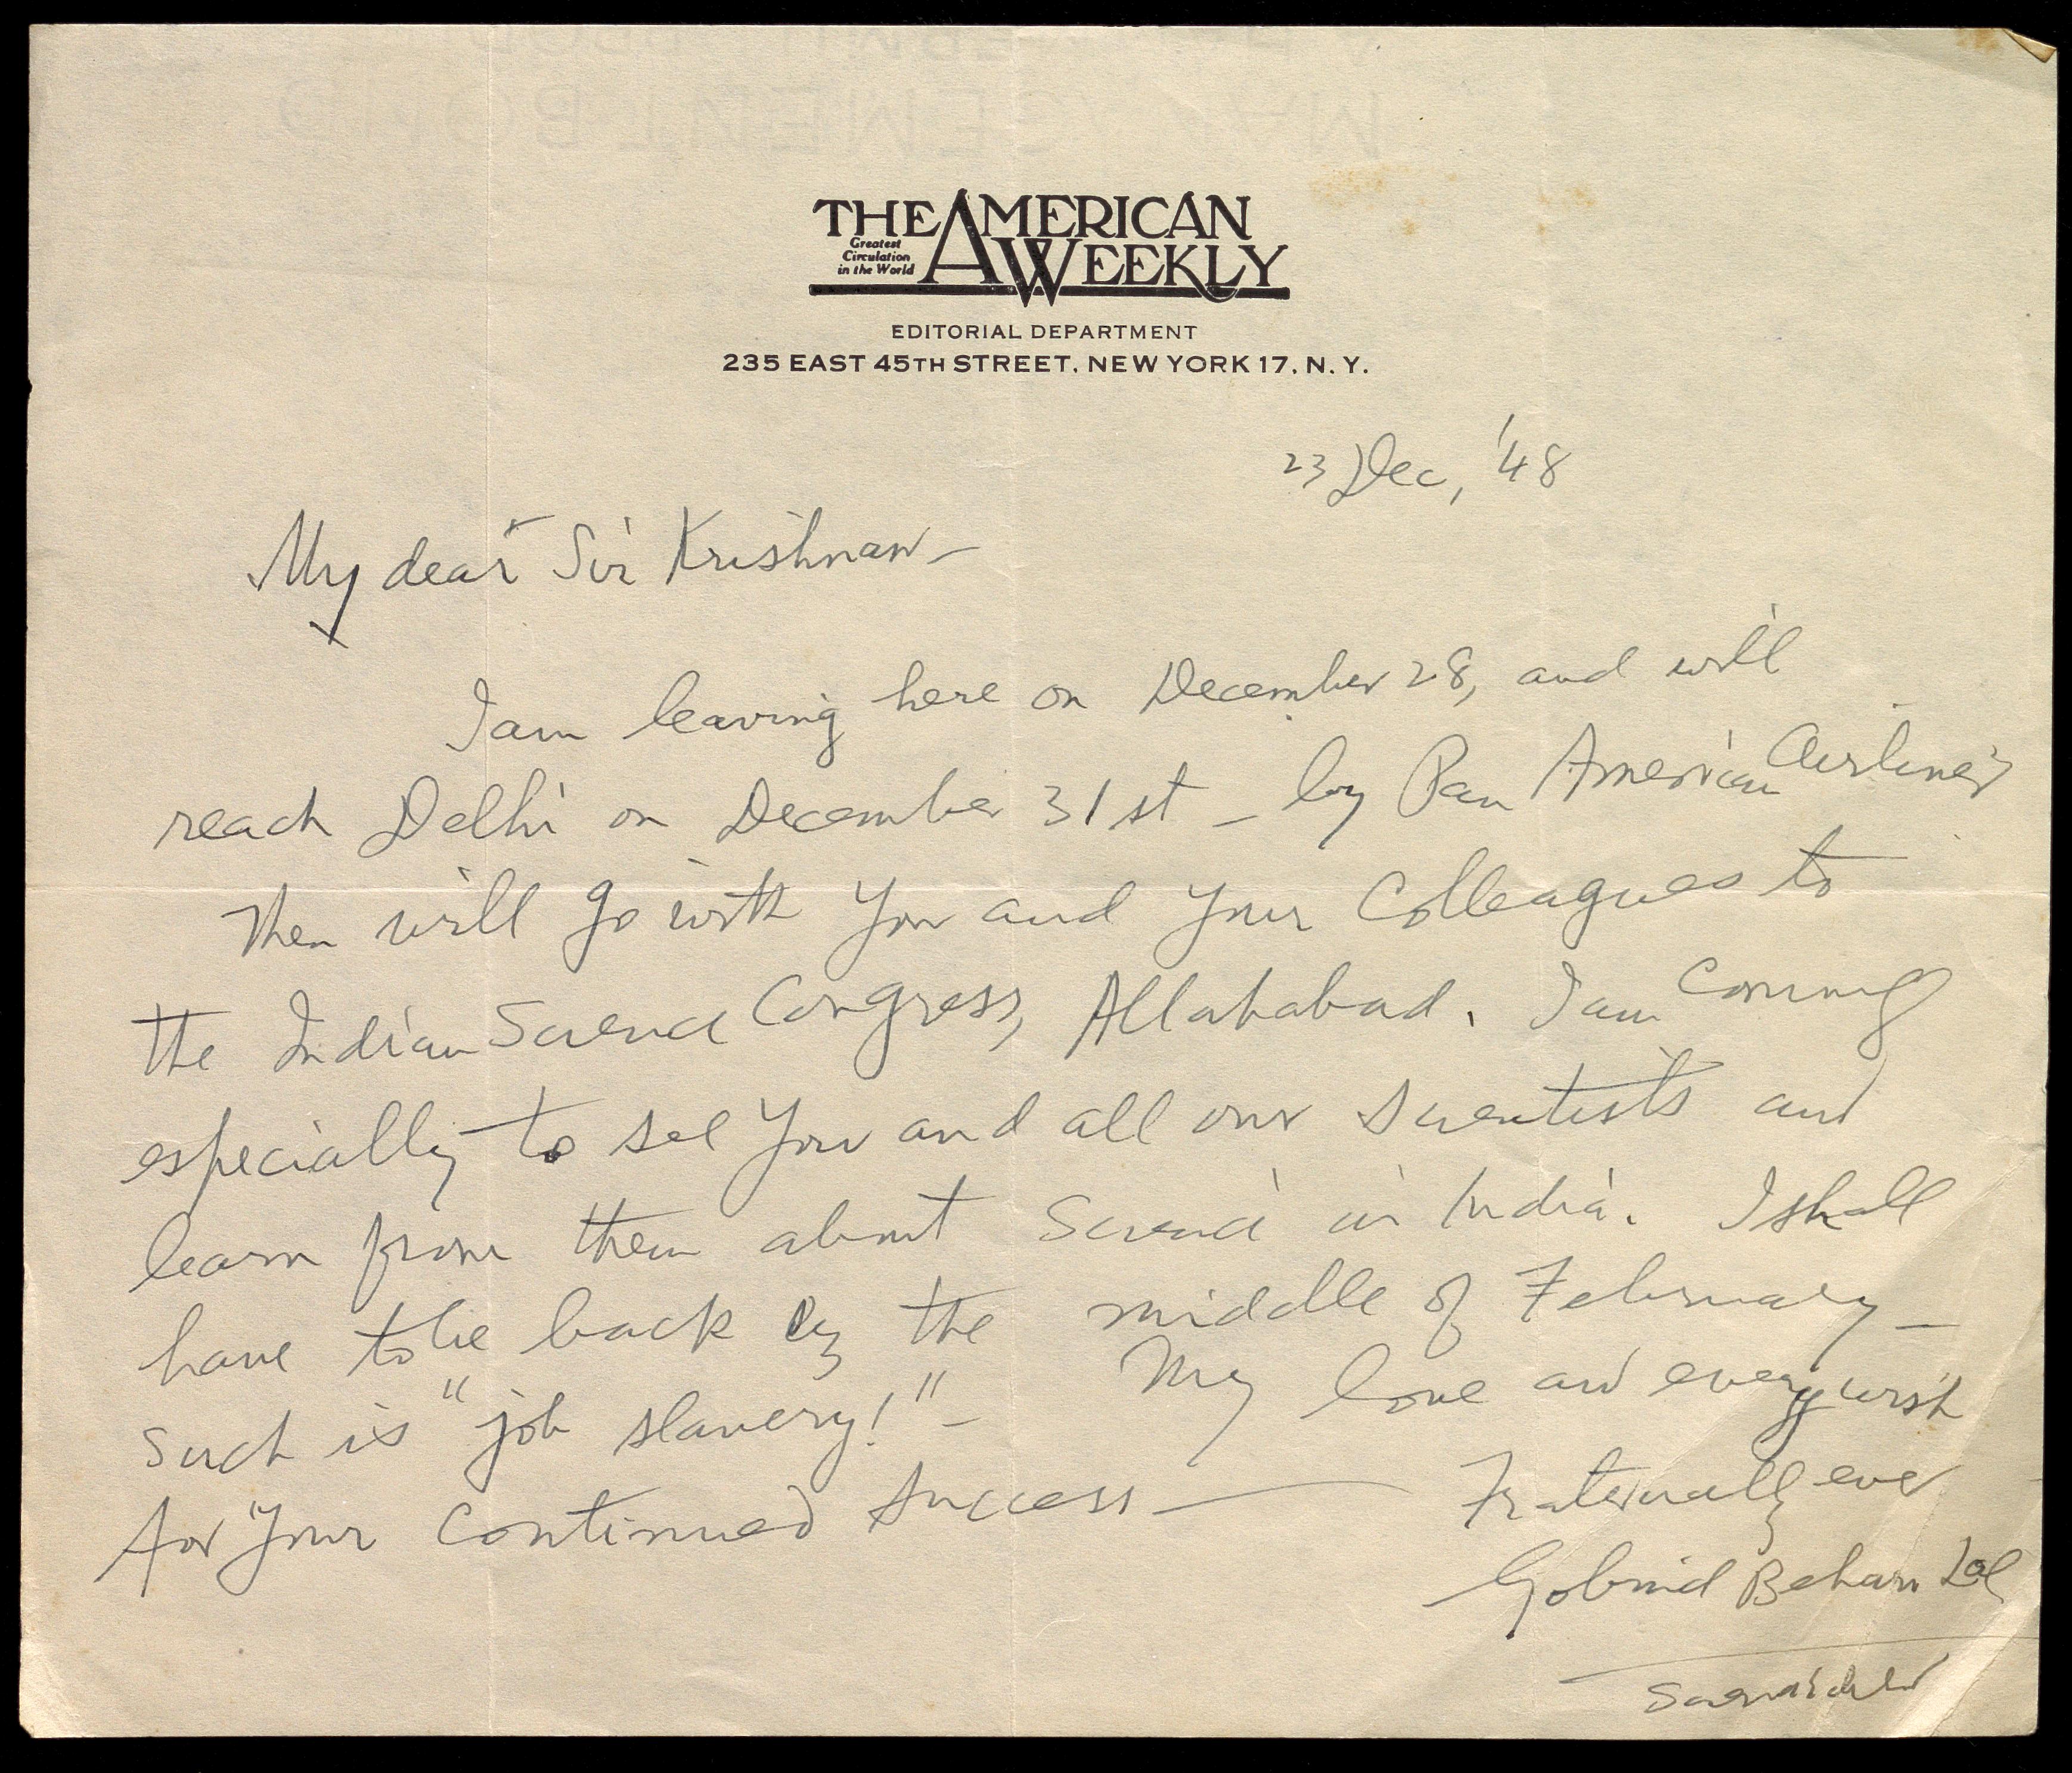 THE AMERICAN WEEKLY
Greatest
Circulation
in the World
EDITORIAL DEPARTMENT
235 EAST 45TH STREET, NEW YORK 17, N. Y.
23 Dec, '48
My dear Sir Krishnan —
I am leaving here on December 28, and will
reach Delhi on December 31st — by Pan American Airlines
Then will go with you and your Colleagues to
the Indian Science Congress, Allahabad. I am coming
especially to see you and all our scientists and
learn from them about Science in India. I shall
have to be back by the middle of February —
such is "job slavery!" — My love and every wish
for your continued success — Fraternally ever
Gobind Behari Lal
Science Editor